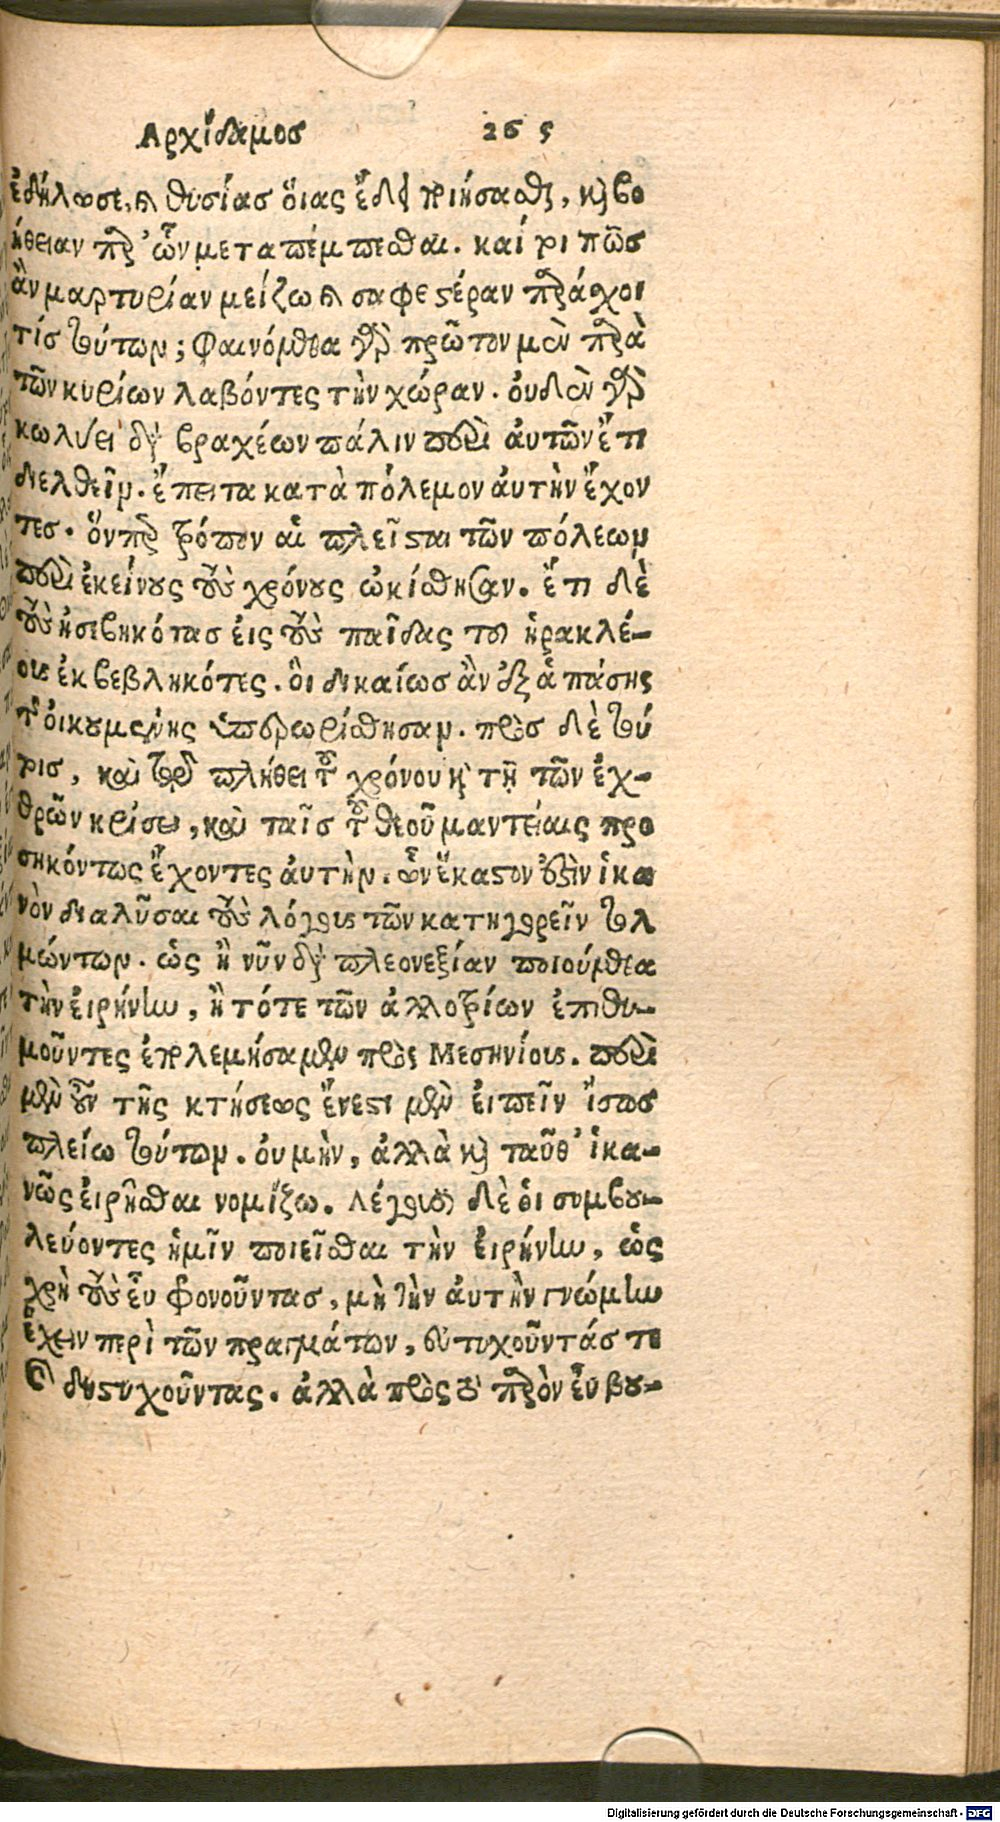 Αρχίδαμοσ 265
ἐδήλωσε, καὶ θυσίας ὅιας ἔδει ποιήσασθαι, καὶ βο
ήθειαν παρ' ὧν μεταπέμπεσθαι. καί τοι πῶς
ἂν μαρτυρίαν μείζω καὶ σαφεστέραν παράσχοι
τίσ τούτων; φαινόμεθα γὰρ πρῶτον μὲν παρὰ
τῶν κυρίων λαβόντες τὴν χώραν. ὀυδὲν γὰρ
κωλύει διὰ βραχέων πάλιν περὶ ἀυτῶν ἔτι
διελθεῖν. ἔπειτα κατὰ πόλεμον ἀυτὴν ἔχον
τεσ. ὅνπερ τρόπον αἱ πλεῖσται τῶν πόλεων
περὶ ἐκείνους τοὺς χρόνους ὠκίσθησαν. ἔτι δὲ
τοὺς ἠσεβηκότασ ἐις τοὺς παῖδας τοῦ ἡρακλέ-
ους ἐκβεβληκότες. ὃι δικαίωσ ἂν ἐξ ἁπάσης
τῆς ὀικουμένης ὑπερωρίσθησαν. πρὸσ δὲ τού
τοισ, καὶ τῷ πλήθει τοῦ χρόνου καὶ τῇ τῶν ἐχ-
θρῶν κρίσει, καὶ ταῖσ τοῦ θεοῦ μαντείαις προ
σηκόντως ἔχοντες ἀυτὴν. ὧν ἕκαστον ἐστὶν ἱκα
νὸν διαλῦσαι τοὺς λόγους τῶν κατηγορεῖν τολ
μώντων. ὡς ἢ νῦν διὰ πλεονεξίαν ποιούμεθα
τὴν ἐιρήνην, ἢ τότε τῶν ἀλλοτρίων ἐπιθυ-
μοῦντες ἐπολεμήσαμεν πρὸς Μεσηνίους. περὶ
μὲν οὖν τῆς κτήσεως ἔνεστι μὲν ἐιπεῖν ἴσωσ
πλείω τούτων. ὀυ μὴν, ἀλλὰ καὶ ταῦθ' ἱκα-
νῶς ἐιρῆσθαι νομίζω. λέγουσι δὲ ὁι συμβου-
λεύοντες ἡμῖν ποιεῖσθαι τὴν ἐιρήνην, ὡς
χρὴ τοὺς ἐὺ φρονοῦντασ, μὴ τὴν ἀυτὴν γνώμην
ἔχειν περὶ τῶν πραγμάτων, ἐυτυχοῦντάσ τε
καὶ δυστυχοῦντας. ἀλλὰ πρὸς τὸ παρὸν ἐὺ βου-
Digitalisierung gefördert durch die Deutsche Forschungsgemeinschaft - DFG